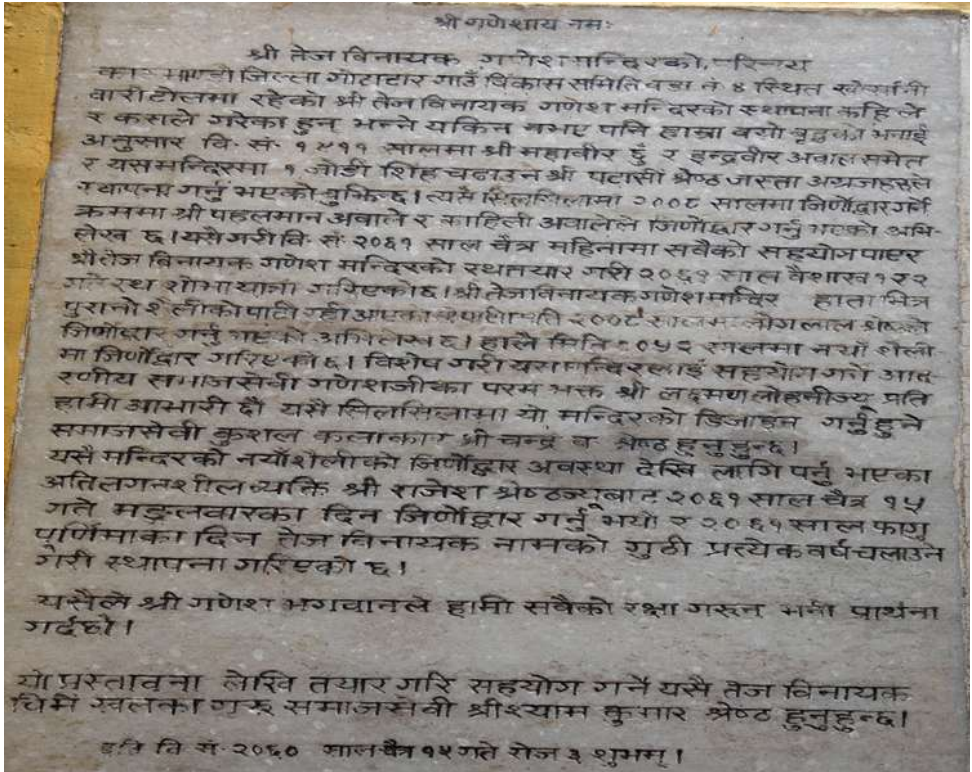 श्री गणेशाय नमः
श्री तेज विनायक गणेश मन्दिरको परिचय
काठमाण्डौ जिल्ला गोटाटार गाउँ विकास समिति वडा नं ४ स्थित खोर्सानी
वारीटोलमा रहेको श्री तेज विनायक गणेश मन्दिरको स्थापना कहिले
र कसले गरेका हुन भन्ने यकिन नभए पनि हाम्रा वयो बृद्धका भनाई
अनुसार वि. सं. १९११ सालमा श्री महावीर दुँ र इन्द्रवीर अवाल समेत
र यसमन्दिरमा १ जोडी शिंह चढाउन श्री पटासी श्रेष्ठ जस्ता अग्रजहरुले
स्थापना गर्नु भएको बुझिन्छ। त्यसै सिलसिलामा २००८ सालमा जिर्णोद्वार गर्ने
क्रममा श्री पहलमान अवाले र काहिली अवालेले जिर्णोद्वार गर्नु भएको अभि-
लेख छ। यसै गरी वि. सं. २०६१ साल चैत्र महिनामा सवैको सहयोग पाएर
श्री तेज विनायक गणेश मन्दिरको रथ तयार गरी २०६१ साल वैशाख १ र २
गते रथ शोभा यात्रा गरिएको छ। श्री तेज विनायक गणेश मन्दिर हाता भित्र
पुरानो शैलीको पाटी रही आएका २००८ सालमा जोगलाल श्रेष्ठको
जिर्णोद्वार गर्नु भएको अभिलेख छ। हाले मिति २०५२ सालमा नयाँ शैली
मा जिर्णोद्वार गरिएको छ। विशेष गरी यस मन्दिरलाई सहयोग गर्ने आद
रणीय समाजसेवी गणेशजीका परम भक्त श्री लक्ष्मण लोहनीज्यू प्रति
हामी आभारी छौ यसै सिलसिलामा यो मन्दिरको डिजाइन गर्नु हुने
समाजसेवी कुशल कलाकार श्री चन्द्र व श्रेष्ठ हुनुहुन्छ।
यसै मन्दिरको नयाँशैलीको जिर्णोद्वार अवस्था देखि लागि पर्नु भएका
अतिलगनशील व्यक्ति श्री राजेश श्रेष्ठज्यूबाट २०६१ साल चैत्र १५
गते मङ्गलवारका दिन जिर्णोद्वार गर्नु भयो र २०६१ साल फागु
पूर्णिमाका दिन तेज विनायक नामको गुठी प्रत्येक वर्ष चलाउने
गेरी स्थापना गरिएको छ।
यसैले श्री गणेश भगवानले हामी सवैको रक्षा गरून भनी प्रार्थना
गर्दछौ।
यो प्रस्तावना लेखि तयार गरि सहयोग गर्ने यसै तेज विनायक
चिमे खलका गुरू समाजसेवी श्री श्याम कुमार श्रेष्ठ हुनुहुन्छ।
इति वि सं. २०६० साल चैत्र १५ गते रोज ३ शुभम्।